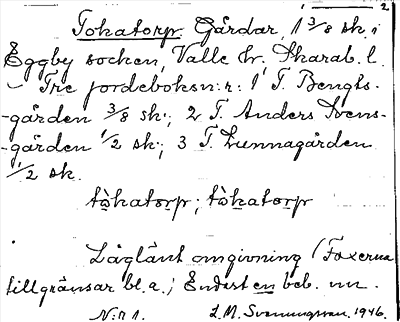 2
Tokatorp. Gårdar, 1 3/8 sk. i
Eggby socken, Valle hr. Skarab. l.
– Tre jordeboksn:r: 1 T. Bengts-
-gården 3/8 sk.; 2 T. Anders Svens-
-gården 1/2 sk.; 3 T. Lunnagården
1/2 sk.
tòkatorp; tòkatorp
Låglänt omgivning (Foxerna
tillgränsar bl.a.; Endast en beb. nu.
N:r 1. L.M. Svenungsson. 1946.